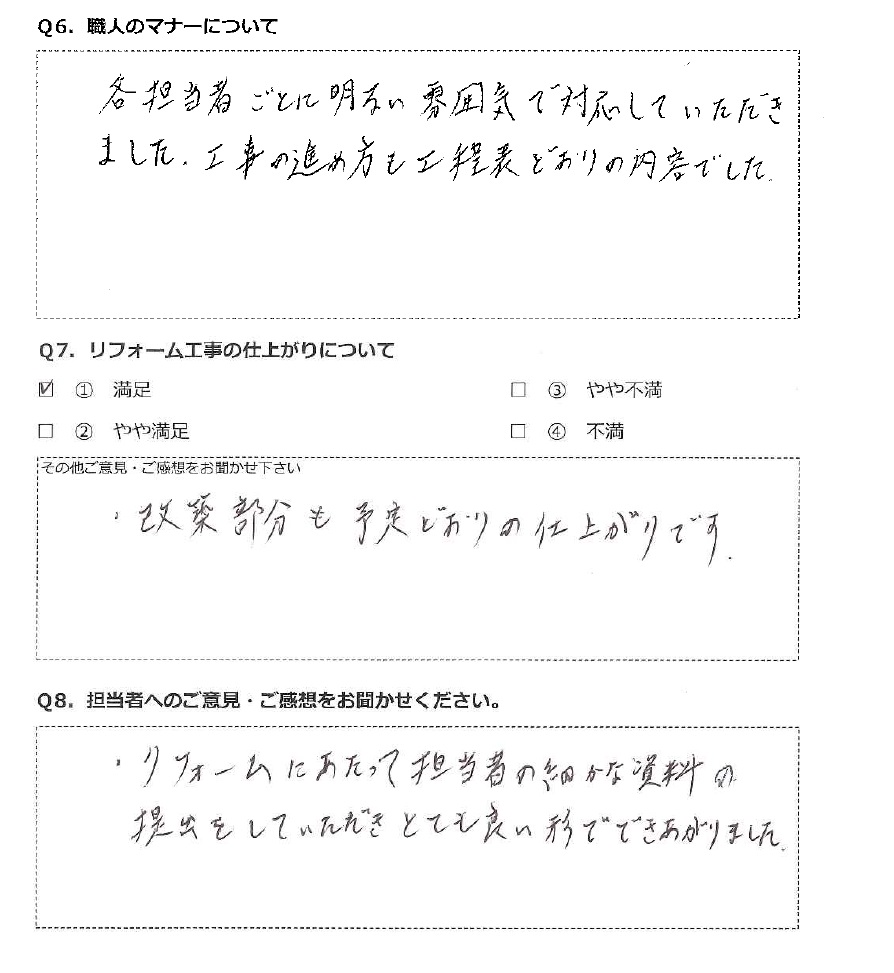 Q6. 職人のマナーについて
各担当者ごとに明るい雰囲気で対応していただき
ました。工事の進め方も工程表どおりの内容でした。
Q7. リフォーム工事の仕上がりについて
☑ ① 満足 □ ③ やや不満
□ ② やや満足 □ ④ 不満
その他ご意見・ご感想をお聞かせ下さい
・改築部分も予定どおりの仕上がりです。
Q8. 担当者へのご意見・ご感想をお聞かせください。
・リフォームにあたって担当者の細かな資料の
提出をしていただきとても良い形でできあがりました。